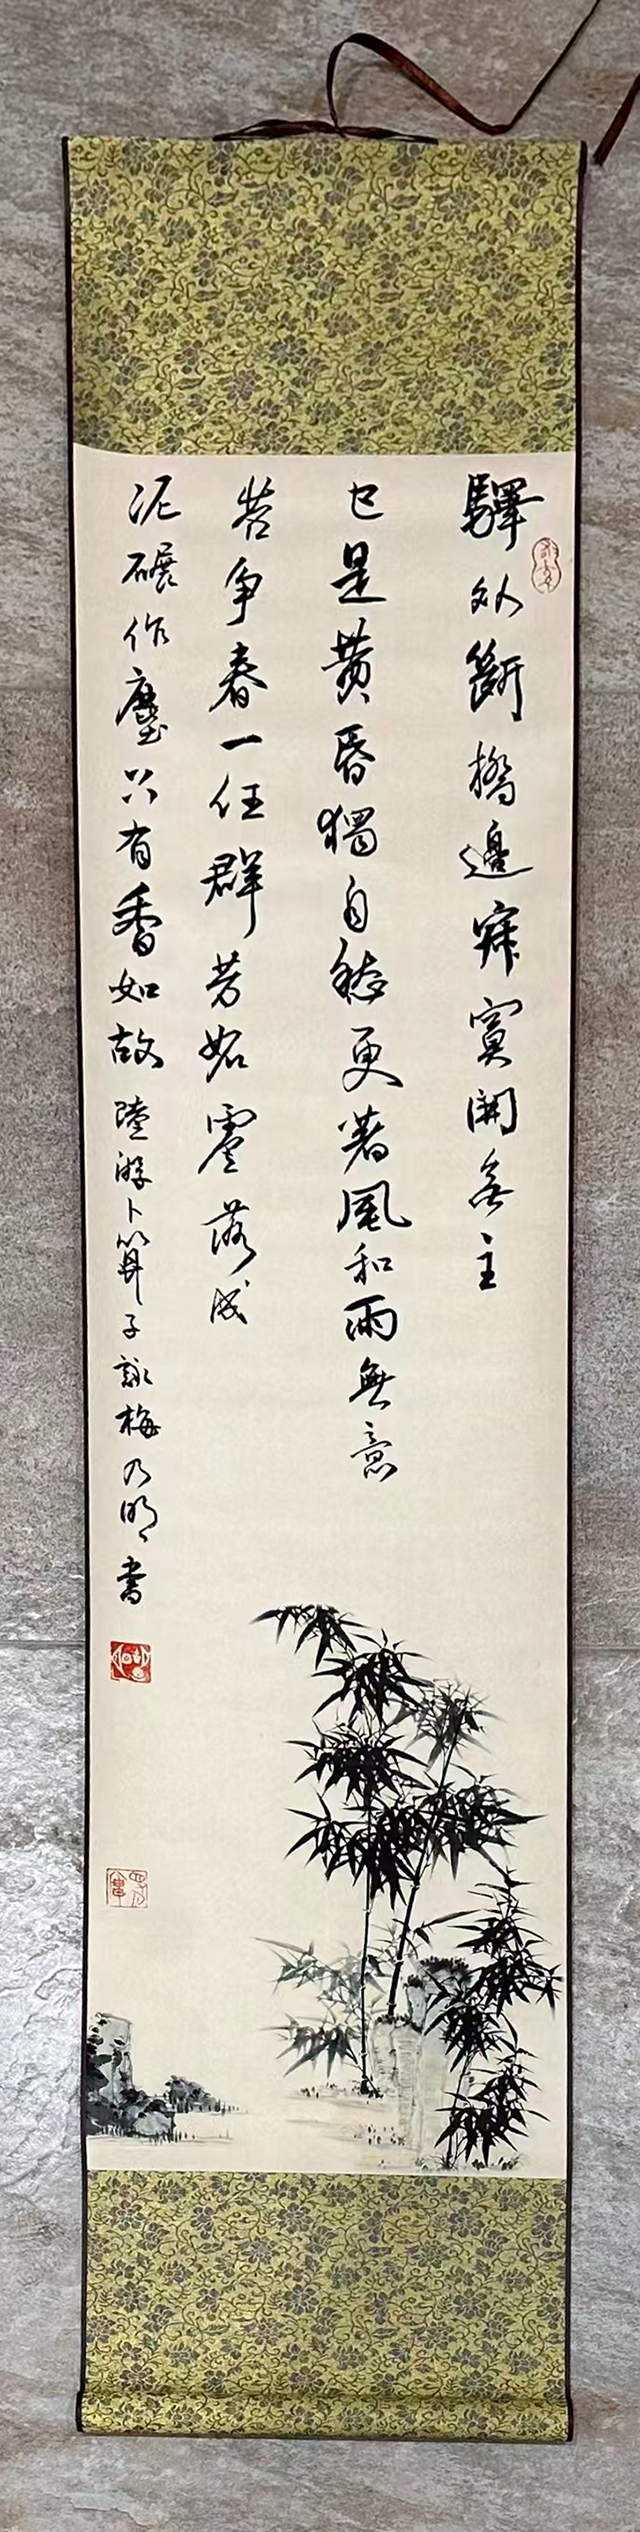 驛外斷橋邊寂寞開無主
已是黄昏獨自愁更著風和雨無意
苦爭春一任群芳妬零落成
泥碾作塵只有香如故陸游卜算子詠梅乃明書